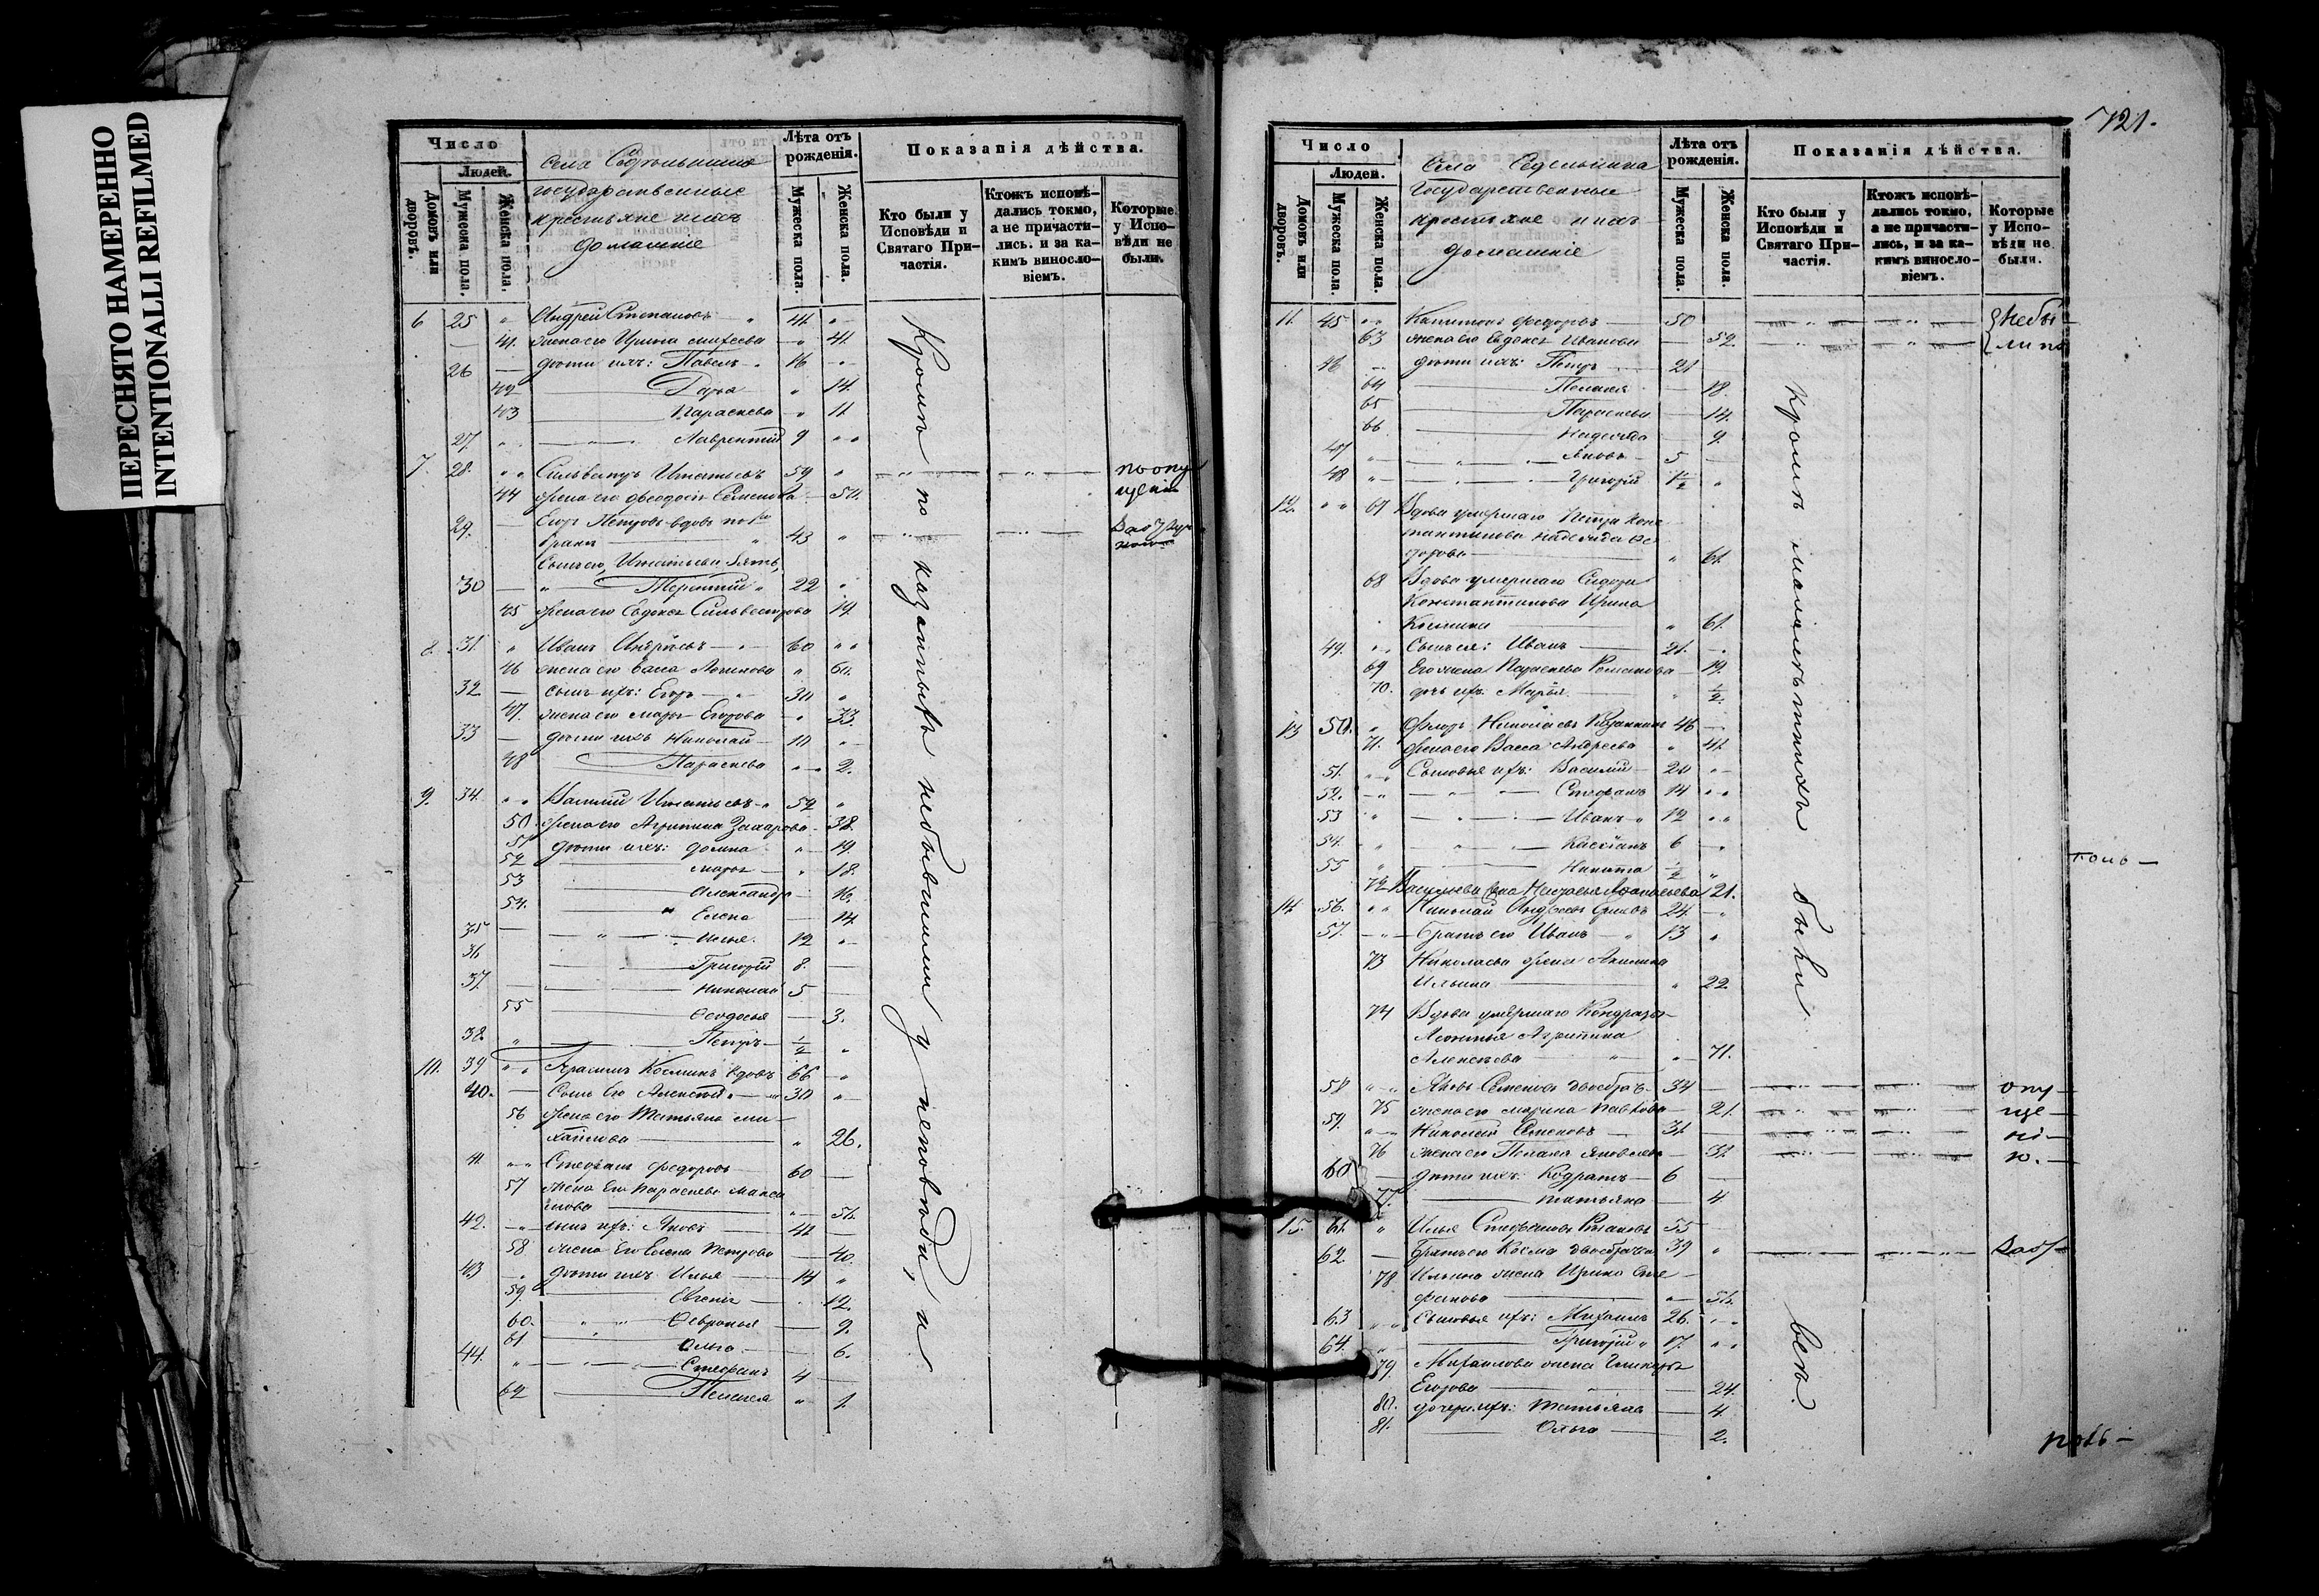 ПЕРЕСНЯТО НАМЕРЕННО
INTENTIONALLI REFILMED
Число
Людей.
Домовъ или дворовъ.
Мужеска пола.
Женска пола.
Села
государственные
крестьяне и ихъ
домашніе
Лѣта отъ рожденія.
Мужеска пола.
Женска пола.
Показанія дѣйства.
Кто были у Исповѣди и Святаго Причастія.
Ктожъ исповѣдались токмо, а не причастились. и за какимъ винословіемъ.
Которые у Исповѣди не были.
6 25 Андрей Степановъ 41
41 жена его Ирина Михеева 41
26 дѣти ихъ: Павелъ 16
42 Дарья 14
43 Параскева 11
27 Лаврентій 9
7 28 Сильвестръ Игнатьевъ 59 по опу
44 жена его Феодосія Семенова 50 щенію
29 Егоръ Петровъ вдовъ по
бракѣ 43
Сынъ его, Игнатьева зять,
30 Терентій 22
45 жена его Евдокія Сильвестрова 19
8 31 Иванъ Андреевъ 60
46 жена его 60
32 сынъ ихъ: Егоръ 30
47 жена его Марья Егорова 33
33 дѣти ихъ Николай 10
48 Параскева 2
9 34 Василій Игнатьевъ 52
50 жена его Агрипина Захарова 38
51 дѣти ихъ: Домна 19
52 Марья 18
53 Александра 16
54 Елена 14
35 Илья 12
36 Григорій 8
37 Николай 5
55 Феодосья 3
38 Петръ 1/2
10 39 Косминъ вдовъ 66
40 Сынъ его Алексѣй 30
56 жена его Татьяна Ми-
хайлова 26
41 Стефанъ Федоровъ 60
57 жена его Параскева Макси
мова 51
42 сынъ ихъ: Яковъ 41
58 жена его Елена Петрова 40
43 дѣти ихъ Илья 14
59 Евгенія 12
60 Февронья 9
61 Ольга 6
44 Стефанъ 4
62 Пелагея 1
Кромѣ показанныхъ небывшими у исповѣди, и
721.
Число
Людей.
Домовъ или дворовъ.
Мужеска пола.
Женска пола.
Села
Государственные
крестьяне и ихъ
домашніе
Лѣта отъ рожденія.
Мужеска пола.
Женска пола.
Показанія дѣйства.
Кто были у Исповѣди и Святаго Причастія.
Ктожъ исповѣдались токмо, а не причастились, и за какимъ винословіемъ.
Которые у Исповѣди не были.
11 45 Капитонъ Федоровъ 50 Небы
63 жена его Евдокія Иванова 52 ли по
46 дѣти ихъ: Петръ 21
64 Пелагея 18
65 Параскева 14
66 Надежда 9
47 Яковъ 5
48 Григорій 1 1/2
12 67 Вдова умершаго Петра Конс
тантинова Надежда Фе
дорова 61
68 Вдова умершаго Сидора
Константинова Ирина
Космина 61
49 Сынъ ея: Иванъ 21
69 Его жена Параскева Романова 19
70 дочь ихъ Марья 1/2
13 50 Флоръ Николаевъ 46
71 жена его Васса Андреева 41
51 Сыновья ихъ: Василій 20
52 Стефанъ 14
53 Иванъ 12
54 Касьянъ 6
55 Никита 1/2
72 Васильева жена Наталья Афанасьева 21
14 56 Николай Андреевъ 24
57 Братъ его Иванъ 13
73 Николаева жена Акилина
Ильина 22
74 Вдова умершаго Кондратья
Леонтьева Агрипина
Алексѣева 71
58 Яковъ Семеновъ двоебрач 34 опу-
75 жена его Марина Павлова 21 ще-
59 Николай Семеновъ 31 ні-
76 жена его Пелагея Яковлева 31 ю.
60 дѣти ихъ: Кодратъ 6
77 Татьяна 4
15 61 Илья Стефановъ 55
62 Братъ его Косма двоебраченъ 39
78 Ильина жена Ирина Сте-
фанова 51
63 Сыновья ихъ: Михаилъ 26
64 Григорій 17
79 Михаилова жена Гликерья
Егорова 24
80 дочери ихъ: Татьяна 4
81 Ольга 2
Кромѣ малолѣтнихъ были всѣ.